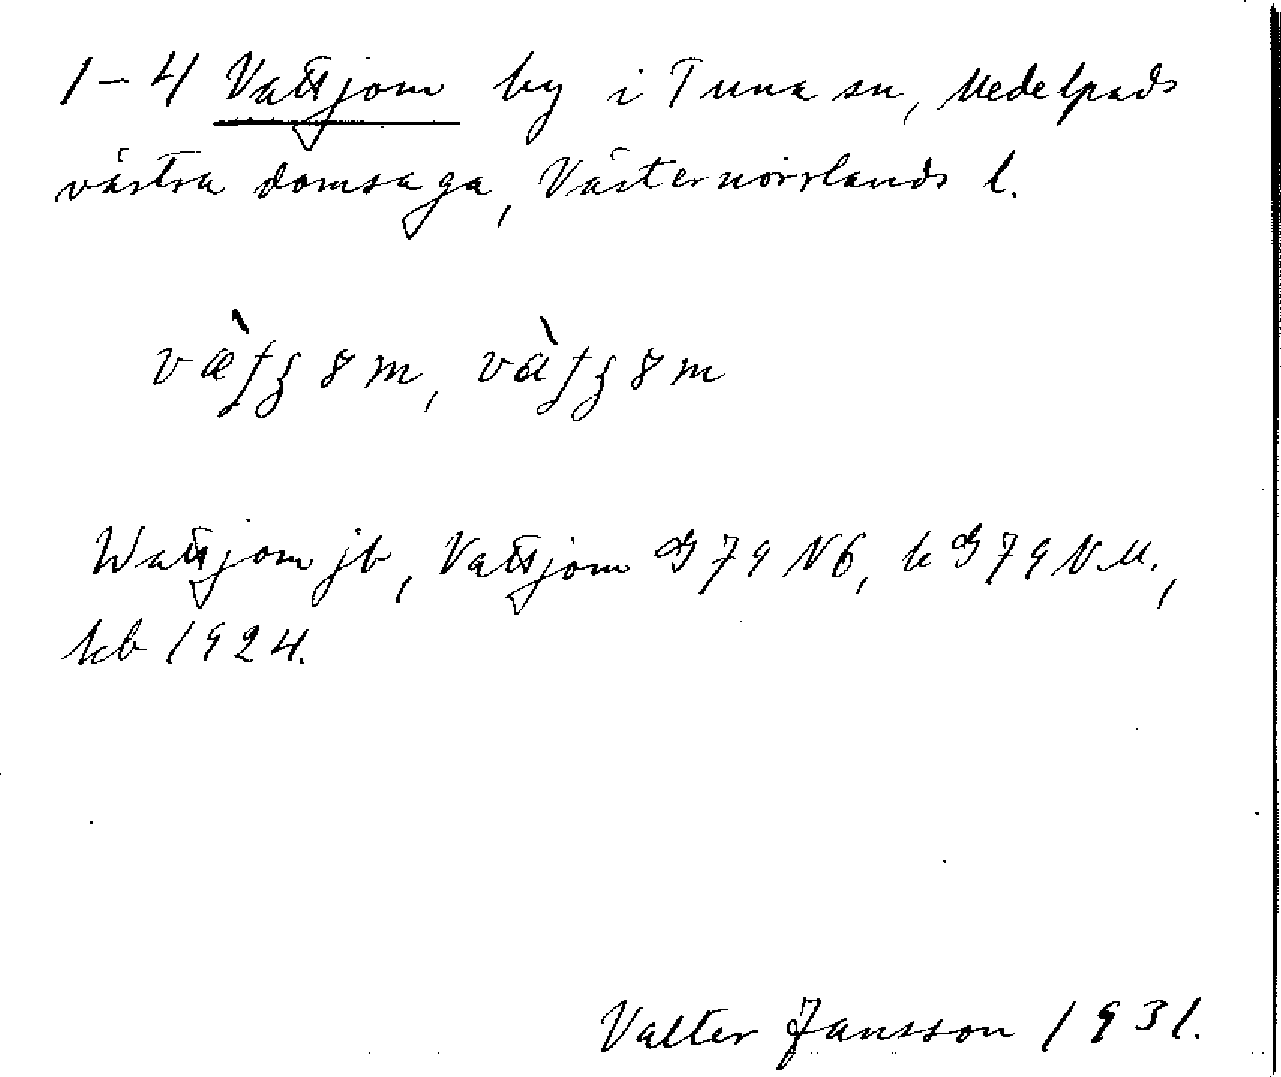 1-4 Vattjom by i Tuna sn, Medelpads
västra domsaga, Västernorrlands l.
Wattjom jb, Vattjom G 79 NO, k G 79 N.M.,
kb 1924.
Valter Jansson 1931.